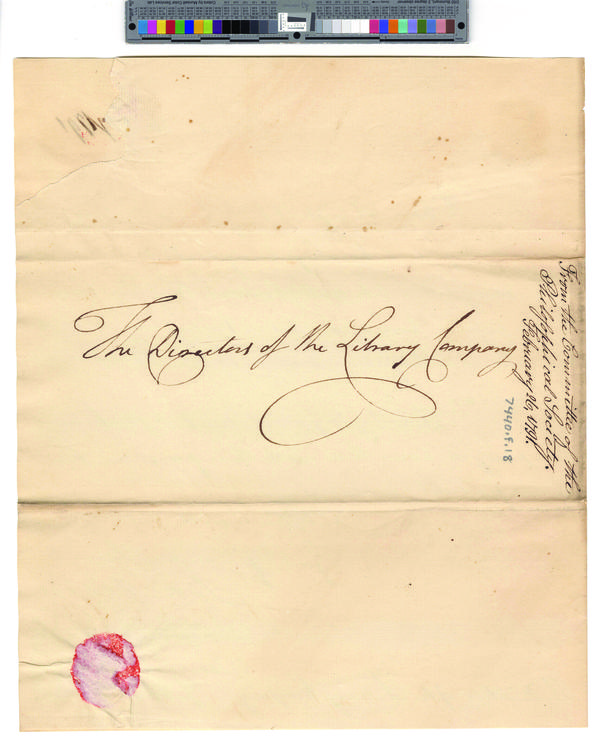 The Directors of the Library Company
From the Committee of the
Philosophical Society.
February 26, 1791.
7440.F.18